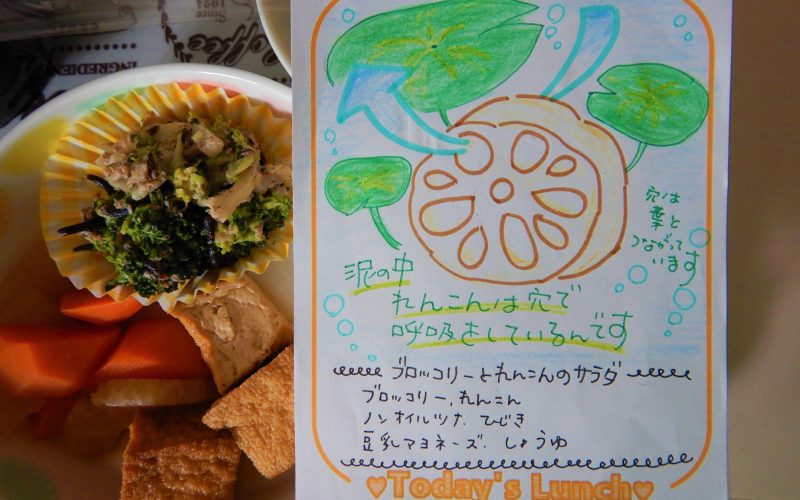 Since
Coffee
INGREDIEN
穴は
葉と
つながって
います
泥の中
れんこんは穴で
呼吸をしているんです
ブロッコリーとれんこんのサラダ
ブロッコリー、れんこん
ノンオイルツナ ひじき
豆乳マヨネーズ. しょうゆ
Today's Lunch